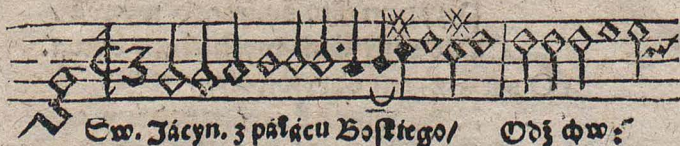 Sw. Jácyn. z páłácu Boskiego/ Odź chw: